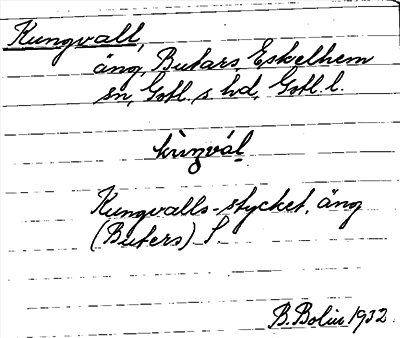 Kungvall,
äng, Butars Eskelhem
sn, Gotl. s. hd, Gotl. l.
kùŋvál
Kungvalls-stycket, äng
(Buters) S.
B. Bolin 1932